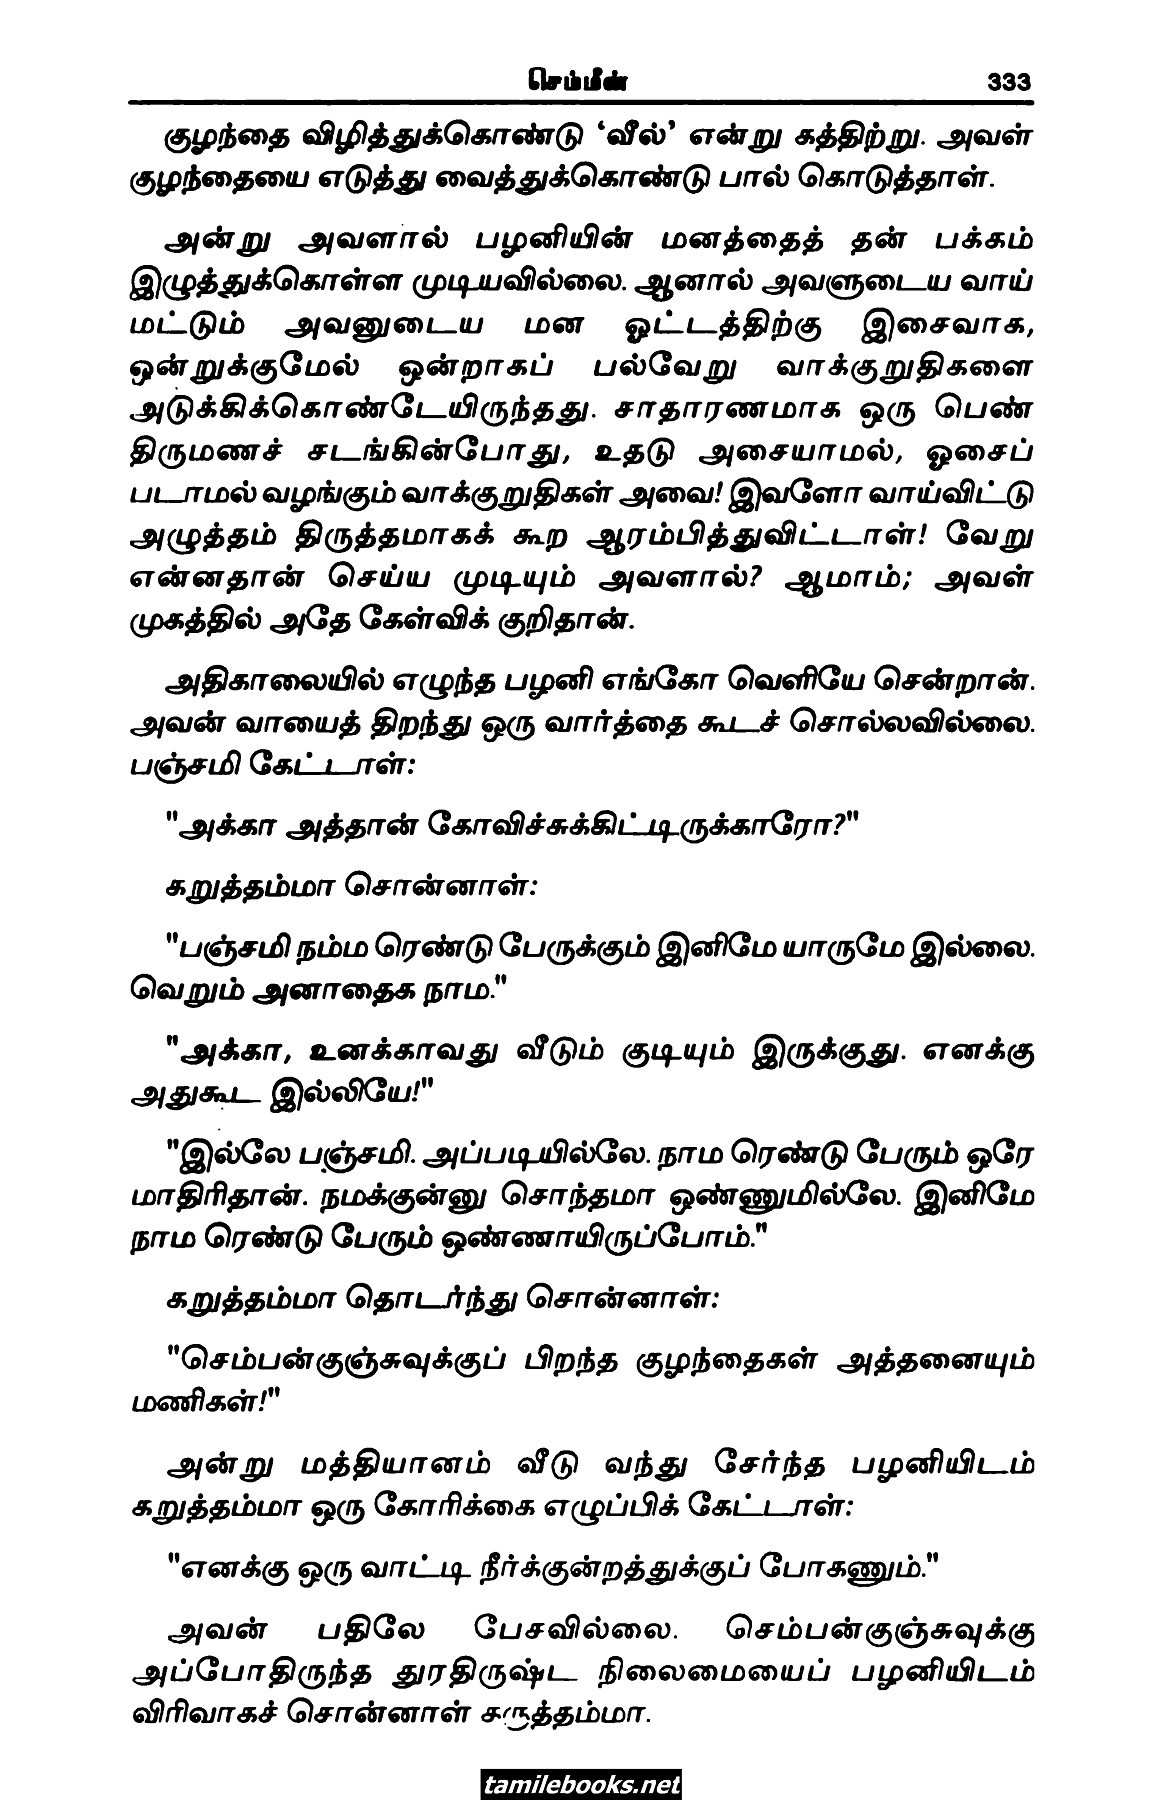 செம்மீன் 333
குழந்தை விழித்துக்கொண்டு ‘வீல்’ என்று கத்திற்று. அவள்
குழந்தையை எடுத்து வைத்துக்கொண்டு பால் கொடுத்தாள்.
அன்று அவளால் பழனியின் மனத்தைத் தன் பக்கம்
இழுத்துக்கொள்ள முடியவில்லை. ஆனால் அவளுடைய வாய்
மட்டும் அவனுடைய மன ஓட்டத்திற்கு இசைவாக,
ஒன்றுக்குமேல் ஒன்றாகப் பல்வேறு வாக்குறுதிகளை
அடுக்கிக்கொண்டேயிருந்தது. சாதாரணமாக ஒரு பெண்
திருமணச் சடங்கின்போது, உதடு அசையாமல், ஓசைப்
படாமல் வழங்கும் வாக்குறுதிகள் அவை! இவளோ வாய்விட்டு
அழுத்தம் திருத்தமாகக் கூற ஆரம்பித்துவிட்டாள்! வேறு
என்னதான் செய்ய முடியும் அவளால்? ஆமாம்; அவள்
முகத்தில் அதே கேள்விக் குறிதான்.
அதிகாலையில் எழுந்த பழனி எங்கோ வெளியே சென்றான்.
அவன் வாயைத் திறந்து ஒரு வார்த்தை கூடச் சொல்லவில்லை.
பஞ்சமி கேட்டாள்:
"அக்கா அத்தான் கோவிச்சுக்கிட்டிருக்காரோ?"
கறுத்தம்மா சொன்னாள்:
"பஞ்சமி நம்ம ரெண்டு பேருக்கும் இனிமே யாருமே இல்லை.
வெறும் அனாதைக நாம."
"அக்கா, உனக்காவது வீடும் குடியும் இருக்குது. எனக்கு
அதுகூட இல்லியே!"
"இல்லே பஞ்சமி. அப்படியில்லே. நாம ரெண்டு பேரும் ஒரே
மாதிரிதான். நமக்குன்னு சொந்தமா ஒண்ணுமில்லே. இனிமே
நாம ரெண்டு பேரும் ஒண்ணாயிருப்போம்."
கறுத்தம்மா தொடர்ந்து சொன்னாள்:
"செம்பன்குஞ்சுவுக்குப் பிறந்த குழந்தைகள் அத்தனையும்
மணிகள்!"
அன்று மத்தியானம் வீடு வந்து சேர்ந்த பழனியிடம்
கறுத்தம்மா ஒரு கோரிக்கை எழுப்பிக் கேட்டாள்:
"எனக்கு ஒரு வாட்டி நீர்க்குன்றத்துக்குப் போகணும்."
அவன் பதிலே பேசவில்லை. செம்பன்குஞ்சுவுக்கு
அப்போதிருந்த துரதிருஷ்ட நிலைமையைப் பழனியிடம்
விரிவாகச் சொன்னாள் கருத்தம்மா.
tamilebooks.net